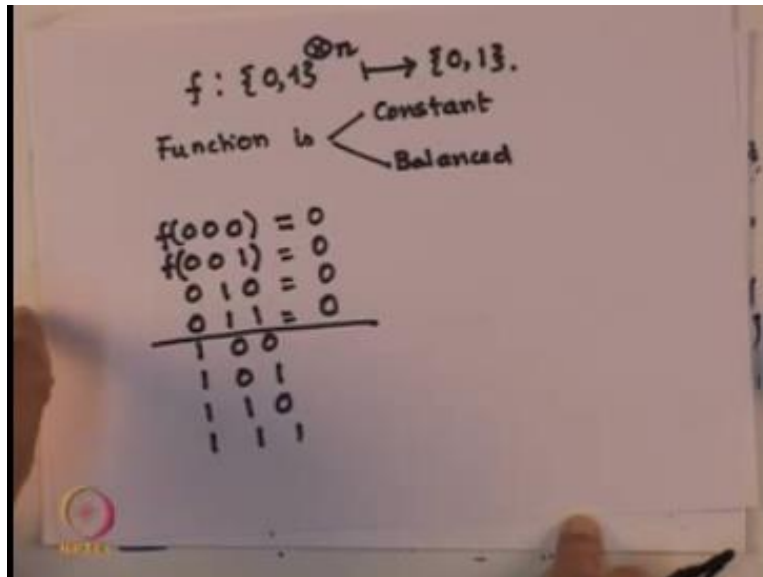 f : {0,1}⊗n ↦ {0,1}.
Function is Constant
Balanced
f(000) = 0
f(001) = 0
010 = 0
011 = 0
100
101
110
111